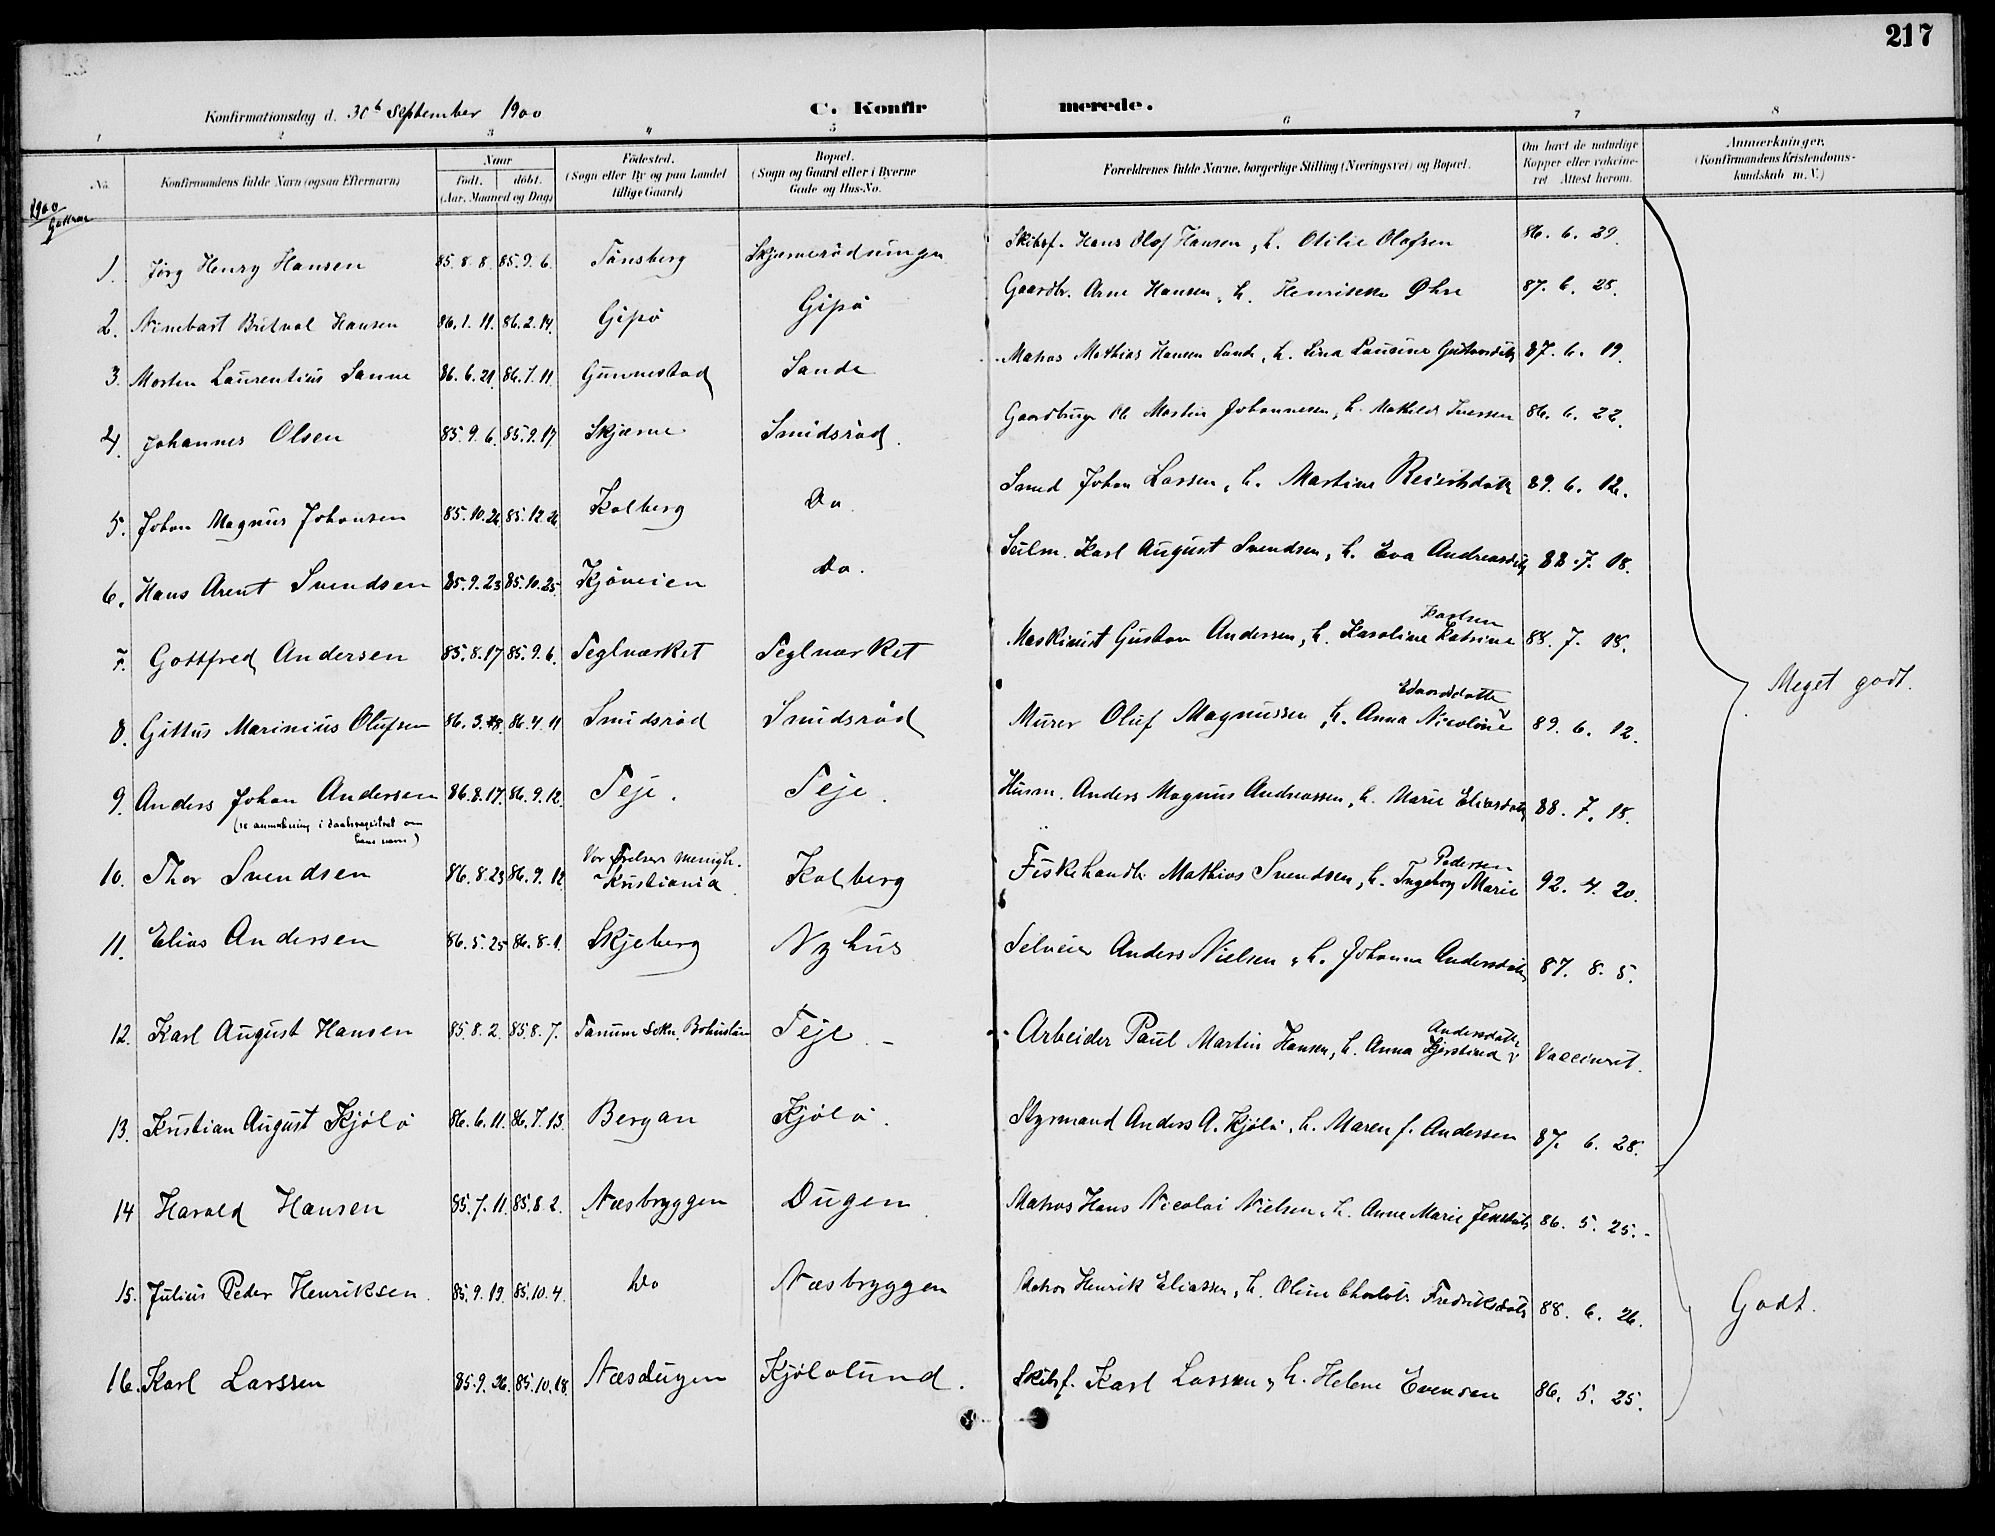 217
Konfirmationsdag d. 30te September 1900 C. Konfirmerede.
1 2 3 4 5 6 7 8
No. Konfirmandens fulde Navn (ogsaa Efternavn) Naar født. døbt. (Aar, Maaned og Dag) Fødested. (Sogn eller By og paa Landet tillige Gaard) Bopæl. (Sogn og Gaard eller i Byerne Gade og Hus-No. Forældrenes fulde Navne, borgerlige Stilling (Næringsvei) og Bopæl. Om havt de naturlige Kopper eller vakcineret Attest herom. Anmærkninger, (Konfirmandens Kristendomskundskab m. V.)
1900
Gutter
1. Jörg Henry Hansen 85.8.8. 85.9.6. Tönsberg Skjærnerödningen Skibsf. Hans Olof Hansen, h. Otilie Olofsen 86. 6. 29.
2. Hansen 86.1.11. 86.2.14. Gipö Gipö Gaardbr. Arne Hansen, h. Henrikke Øhre 87. 6. 28.
3. Morten Laurentius Sanne 86.6.21. 86.7.11. Gunnestad Sande Matros Mathias Hansen Sande, h. Lina 87. 6. 19.
4. Johannes Olsen 85.9.6. 85.9.17 Skjærne Smidsröd. Gaardbruger Ole Martin Johannesen, h. Mathilde Iversen 86. 6. 22.
5. Johan Magnus Johansen 85.10.26 85.12.26 Kolberg Do. Smed Johan Larsen, h. Martine 89. 6. 12.
6. Hans Arent Svendsen 85.9.23 85.10.25. Kjöveien Do. Karl August Svendsen, h. Eva Andreasdtr 88. 7. 18.
7. Gottfred Andersen 85.8.17 85.9.6. Teglværket Teglværket Maskinist Gustav Andersen, h. Karoline Katrine Karlsen 88. 7. 18.
8. Gittus Marinius Olufsen 86.3. 86.4.11 Smidsröd Smidsröd Murer Oluf Magnussen, h. Anna Nicoline Edvardsdatter 89. 6. 12.
9. Anders Johan Andersen 86.8.17. 86.9.12. Teje. Teje. Husm. Anders Magnus Andreassen, h. Marie Eliasdtr 88. 7. 18.
(se anmerkning i daabsregistret om
hans navn)
10. Thor Svendsen 86.8.23 86.9.12 Vor Frelsers Menigh. Kristiania Kolberg Fiskehandler Mathias Svendsen, h. Ingeborg Marie Pedersen 92. 4. 20.
11. Elias Andersen 86.5.25 86.8.1. Skjeberg Nyhus Selveier Anders Nielsen, h. Johanne Andersdtr 87. 8. 5.
12. Karl August Hansen 85.8.2. 85.8.7. Tanum Sokn, Bohuslän Teje Arbeider Paul Martin Hansen, h. Anna Kjerstina Andersdatter Vaccineret.
13. Kristian August Kjölö 86.6.11. 86.7.13. Bergan Kjölö. Styrmand Anders A. Kjölö, h. Maren f. Andersen 87. 6. 28.
Meget godt.
14 Harald Hansen 85.7.11. 85.8.2. Næsbryggen Dugen Matros Hans Nicolai Nielsen, h. Anne Marie Jensdtr 86. 5. 25.
15. Julius Peder Henriksen. 85.9.19. 85.10.4. Do Næsbryggen Matros Henrik Eliassen, h. Oline Charlotte Fredriksdtr 88. 6. 26.
16. Karl Larssen 85.9.26. 85.10.18. Næsdugen Kjölolund. Skibsf. Karl Larssen, h. Helene Evensen 86. 5. 25.
Godt.